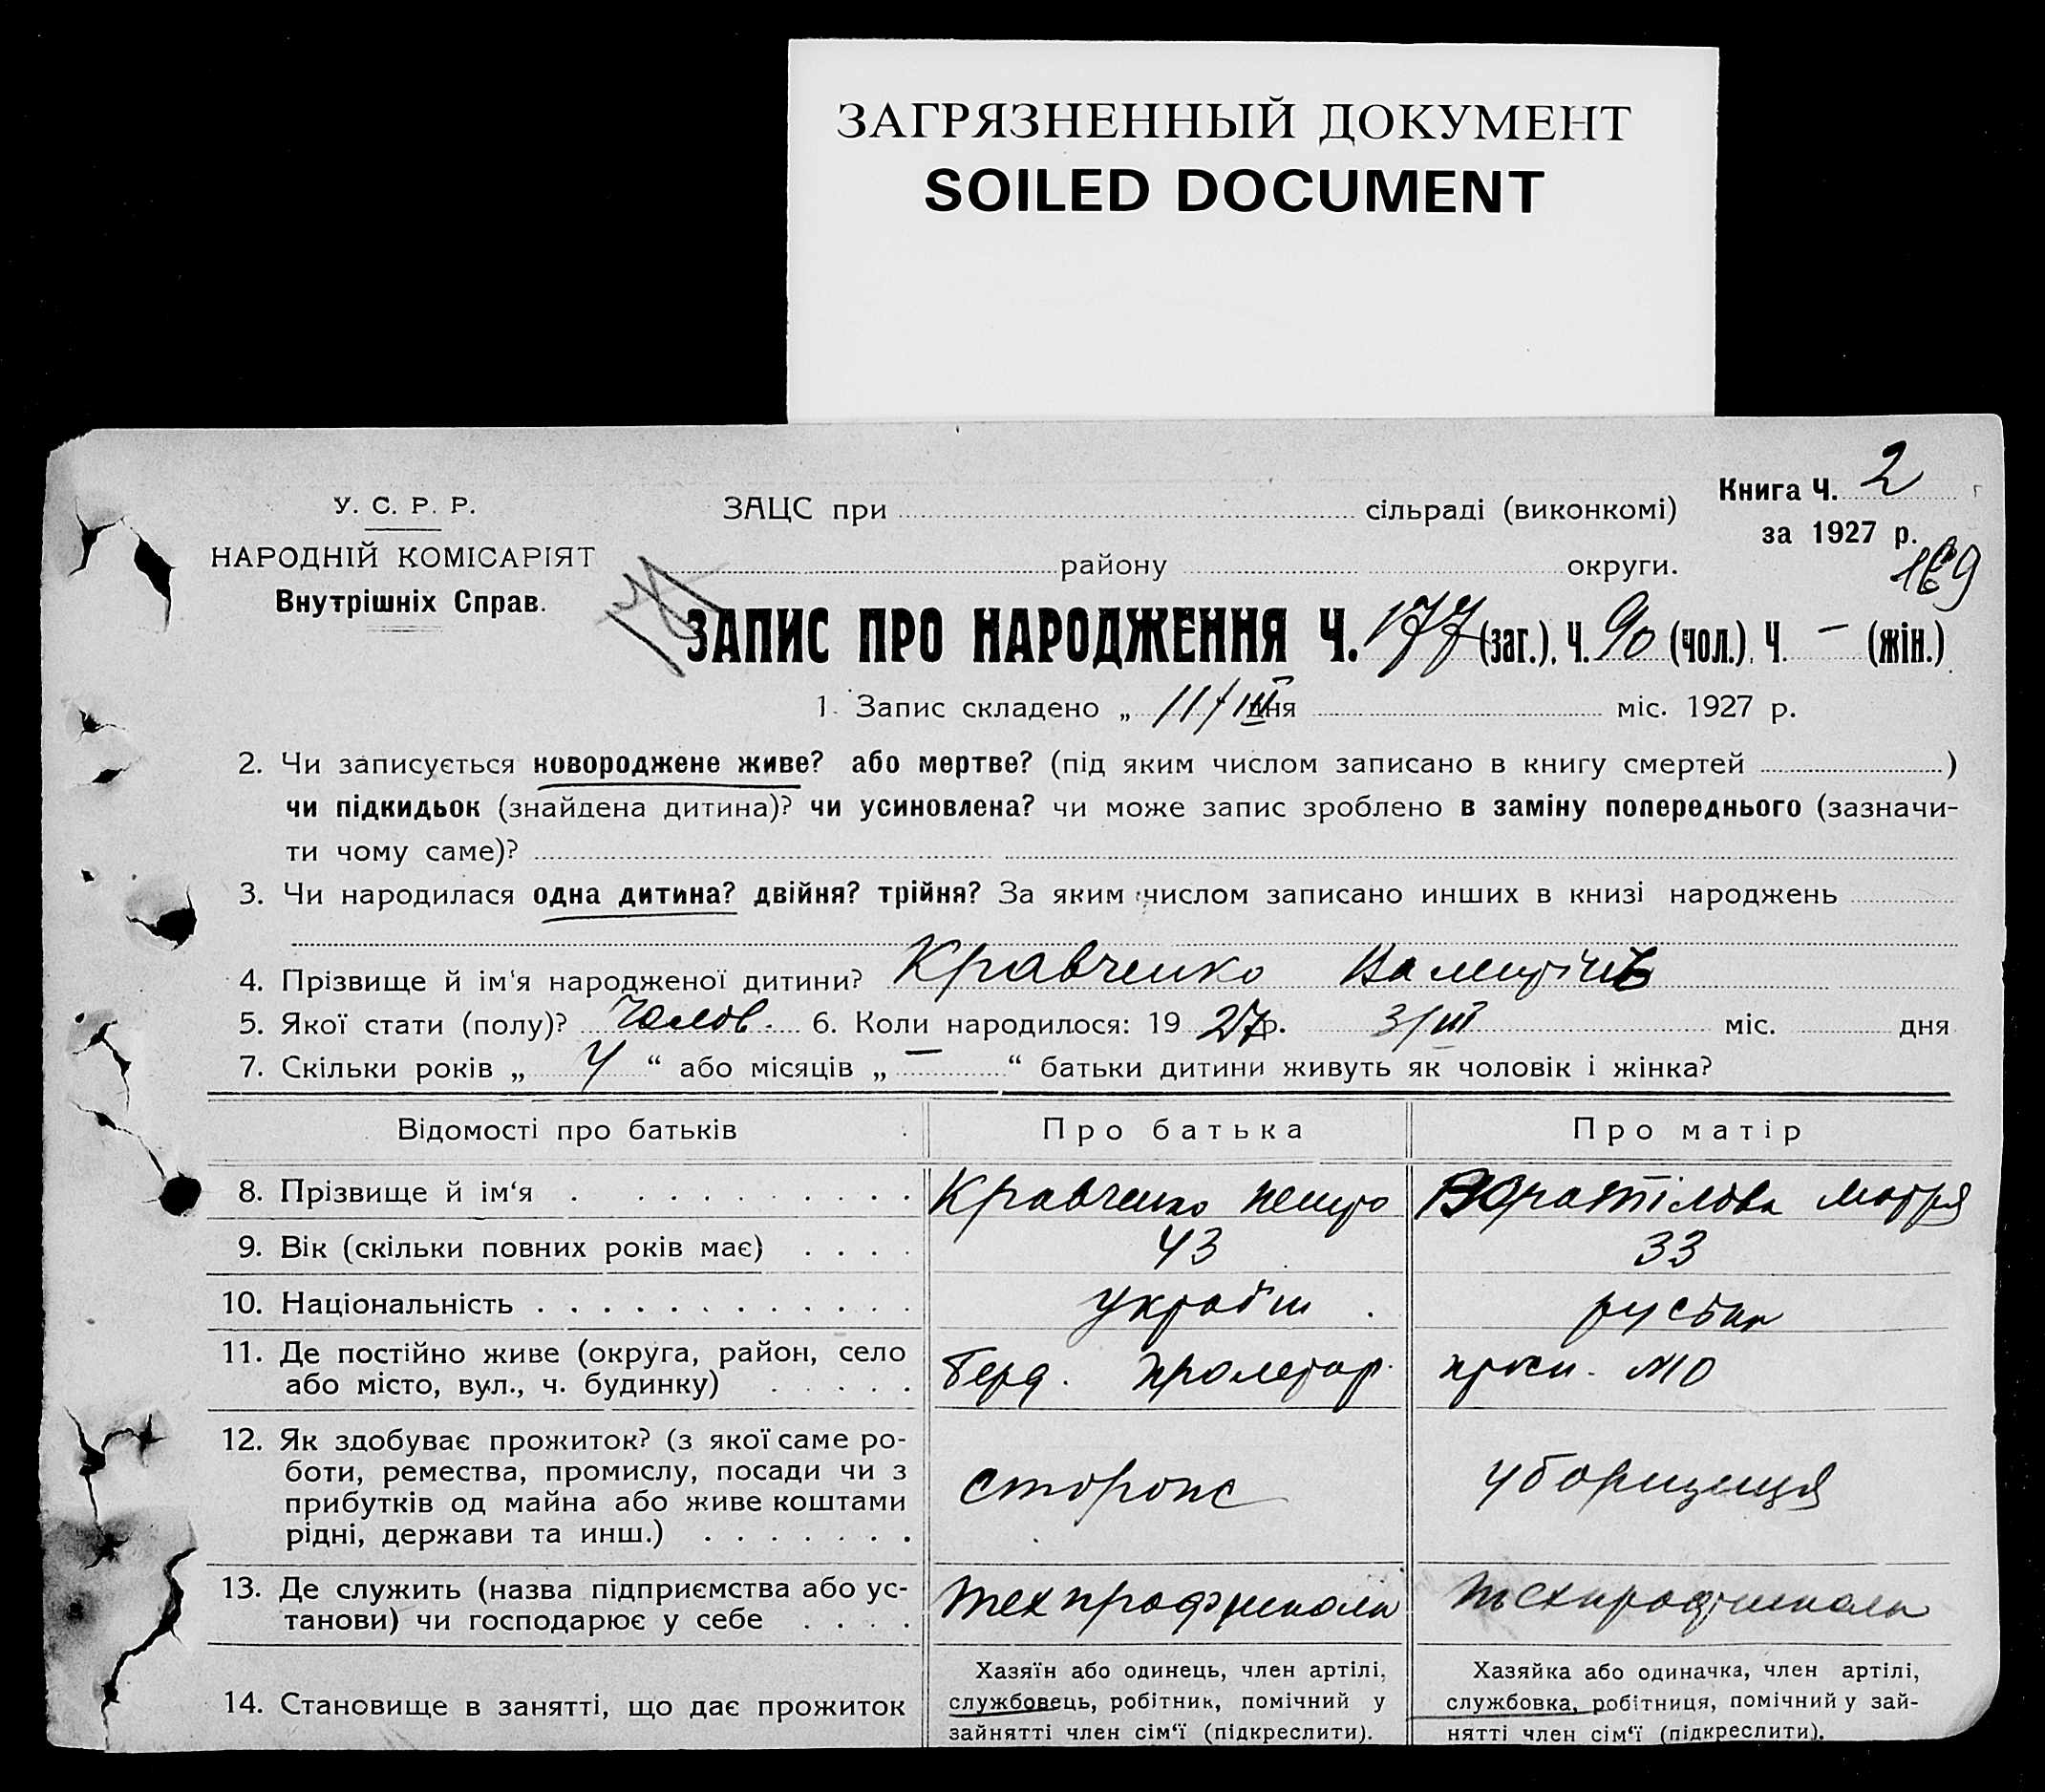 ЗАГРЯЗНЕННЫЙ ДОКУМЕНТ
SOILED DOCUMENT
Книга Ч. 2
за 1927 р.
169
У. С. Р. Р.
НАРОДНІЙ КОМІСАРІЯТ
Внутрішніх Справ.
ЗАЦС при сільраді (виконкомі)
району округи.
ЗАПИС ПРО НАРОДЖЕННЯ Ч. 177 (заг.), Ч. 90 (чол.), Ч. – (жін.)
1. Запис складено „ 11/III дня міс. 1927 р.
2. Чи записується новороджене живе? або мертве? (під яким числом записано в книгу смертей )
чи підкидьок (знайдена дитина)? чи усиновлена? чи може запис зроблено в заміну попереднього (зазначи-
ти чому саме)?
3. Чи народилася одна дитина? двійня? трійня? За яким числом записано инших в книзі народжень
4. Прізвище й ім'я народженої дитини? Кравченко
5. Якої стати (полу)? Чолов. 6. Коли народилося: 19 27 р. 3/III міс. дня
7. Скільки років „ 4 “ або місяців „ – “ батьки дитини живуть як чоловік і жінка?
Відомості про батьків Про батька Про матір
8. Прізвище й ім'я Кравченко Петро Мотря
9. Вік (скільки повних років має) 43 33
10. Національність україн. руська
11. Де постійно живе (округа, район, село
або місто, вул., ч. будинку) Берд. Пролетар. №10
12. Як здобуває прожиток? (з якої саме ро-
боти, ремества, промислу, посади чи з
прибутків од майна або живе коштами
рідні, держави та инш.) сторож уборщиця
13. Де служить (назва підприємства або ус-
танови) чи господарює у себе Техпрофшкола Техпрофшкола
14. Становище в занятті, що дає прожиток
Хазяїн або одинець, член артілі,
службовець, робітник, помічний у
зайнятті член сім'ї (підкреслити).
Хазяйка або одиначка, член артілі,
службовка, робітниця, помічний у зай-
нятті член сім'ї (підкреслити).